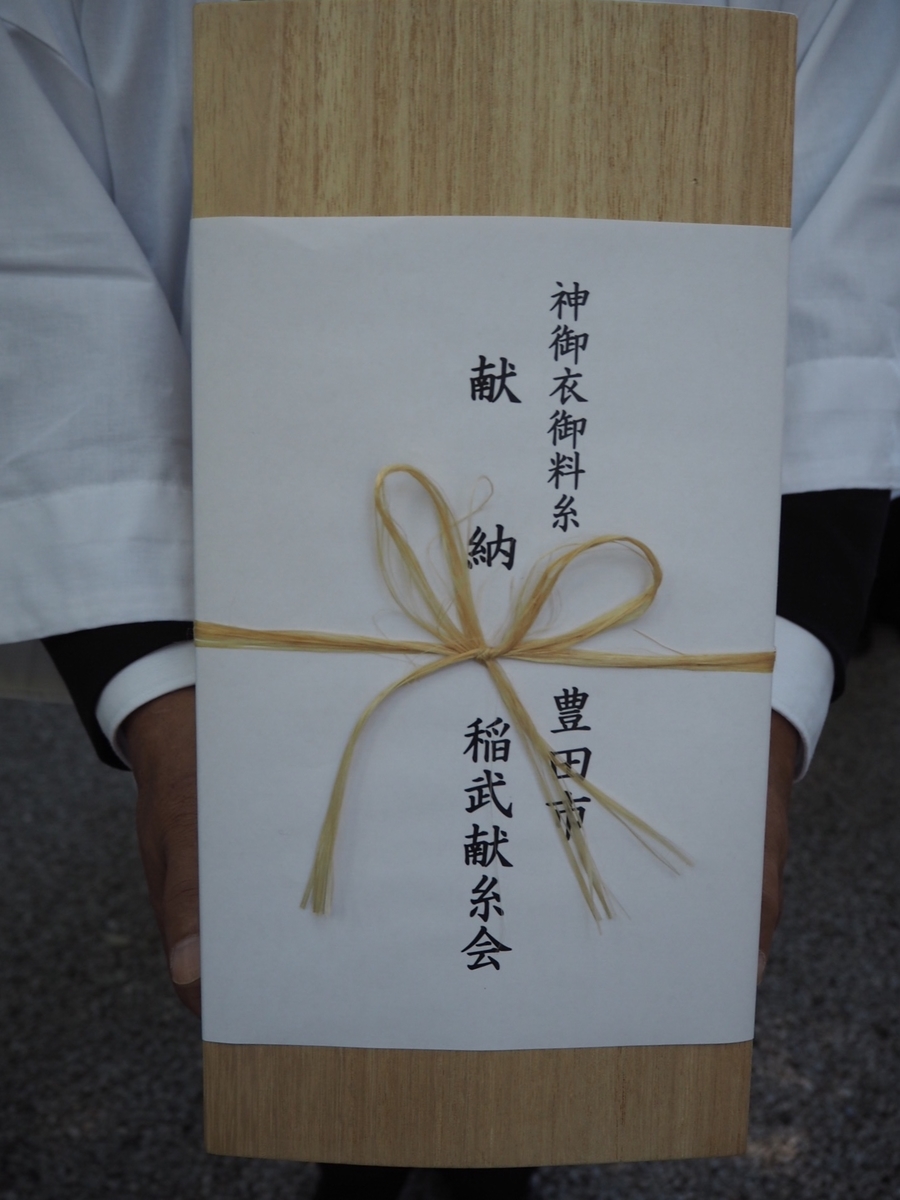 神御衣御料糸
豊田市
献納
稲武献糸会